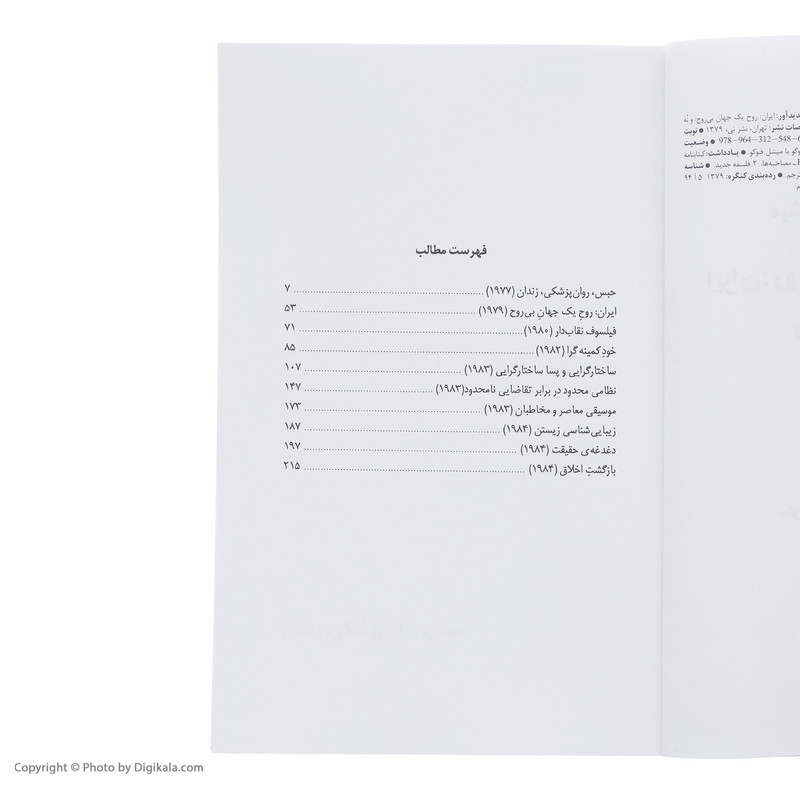 دیدآور: ایران: روح یک جهان بی‌روح: و نُه
صات نشر: تهران، نشر نی، ۱۳۷۹ ● نوبت
۹۷۸-۹۶۴-۳۱۲-۵۴۸-۶ ● وضعیت
وگو با میشل فوکو. ● یادداشت: کتابنامه
ـ مصاحبه‌ها. ۲. فلسفه جدید. ● شناسه
ترجم. ● رده‌بندی کنگره: ۱۳۷۹ ۵ ۹۴
فهرست مطالب
حبس، روان‌پزشکی، زندان (۱۹۷۷) ........ ۷
ایران: روحِ یک جهانِ بی‌روح (۱۹۷۹) ........ ۵۳
فیلسوف نقاب‌دار (۱۹۸۰) ........ ۷۱
خودِ کمینه گرا (۱۹۸۲) ........ ۸۵
ساختارگرایی و پسا ساختارگرایی (۱۹۸۳) ........ ۱۰۷
نظامی محدود در برابر تقاضایی نامحدود(۱۹۸۳) ........ ۱۴۷
موسیقی معاصر و مخاطبان (۱۹۸۳) ........ ۱۷۳
زیبایی‌شناسی زیستن (۱۹۸۴) ........ ۱۸۷
دغدغه‌ی حقیقت (۱۹۸۴) ........ ۱۹۷
بازگشتِ اخلاق (۱۹۸۴) ........ ۲۱۵
Copyright © Photo by Digikala.com